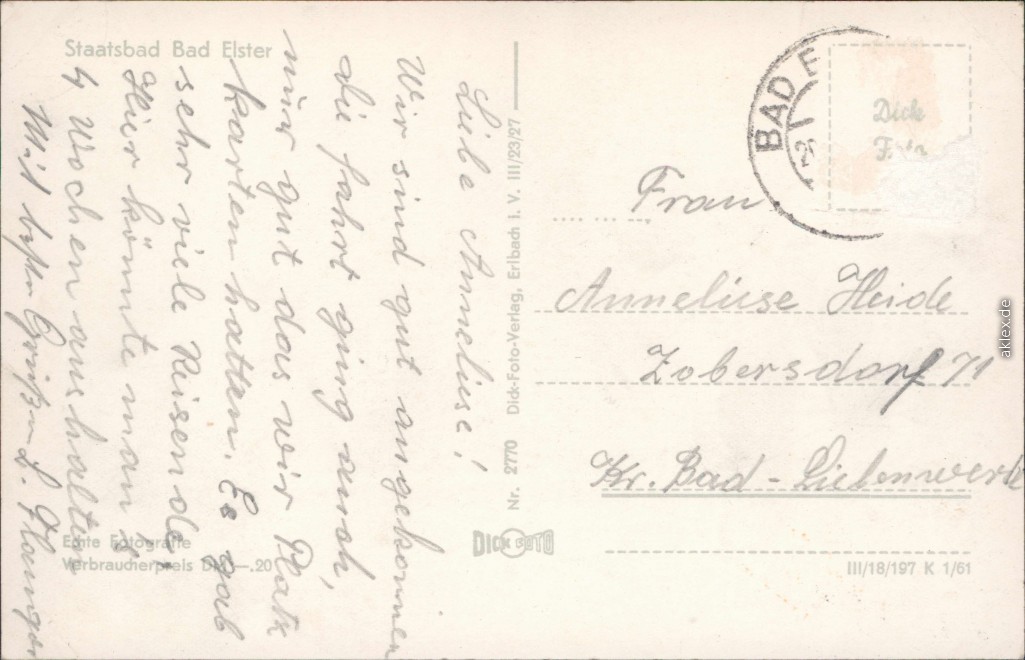 Staatsbad Bad Elster
Liebe Anneliese!
Wir sind gut angekommen
die fahrt ging auch,
nur gut das wir Platz
karten hatten. Es gab
sehr viele Reisende.
Hier könnte man s
4 Wochen aushalten
Mit besten Grüßen L.
Echte Fotografie
Verbraucherpreis DM —.20
Nr. 2770 Dick-Foto-Verlag, Erlbach i. V. III/23/27
DICK FOTO
BAD E
Dick
Foto
Frau
Anneliese Heide
Zobersdorf 71
Kr. Bad-Liebenwerk
III/18/197 K 1/61
aklex.de